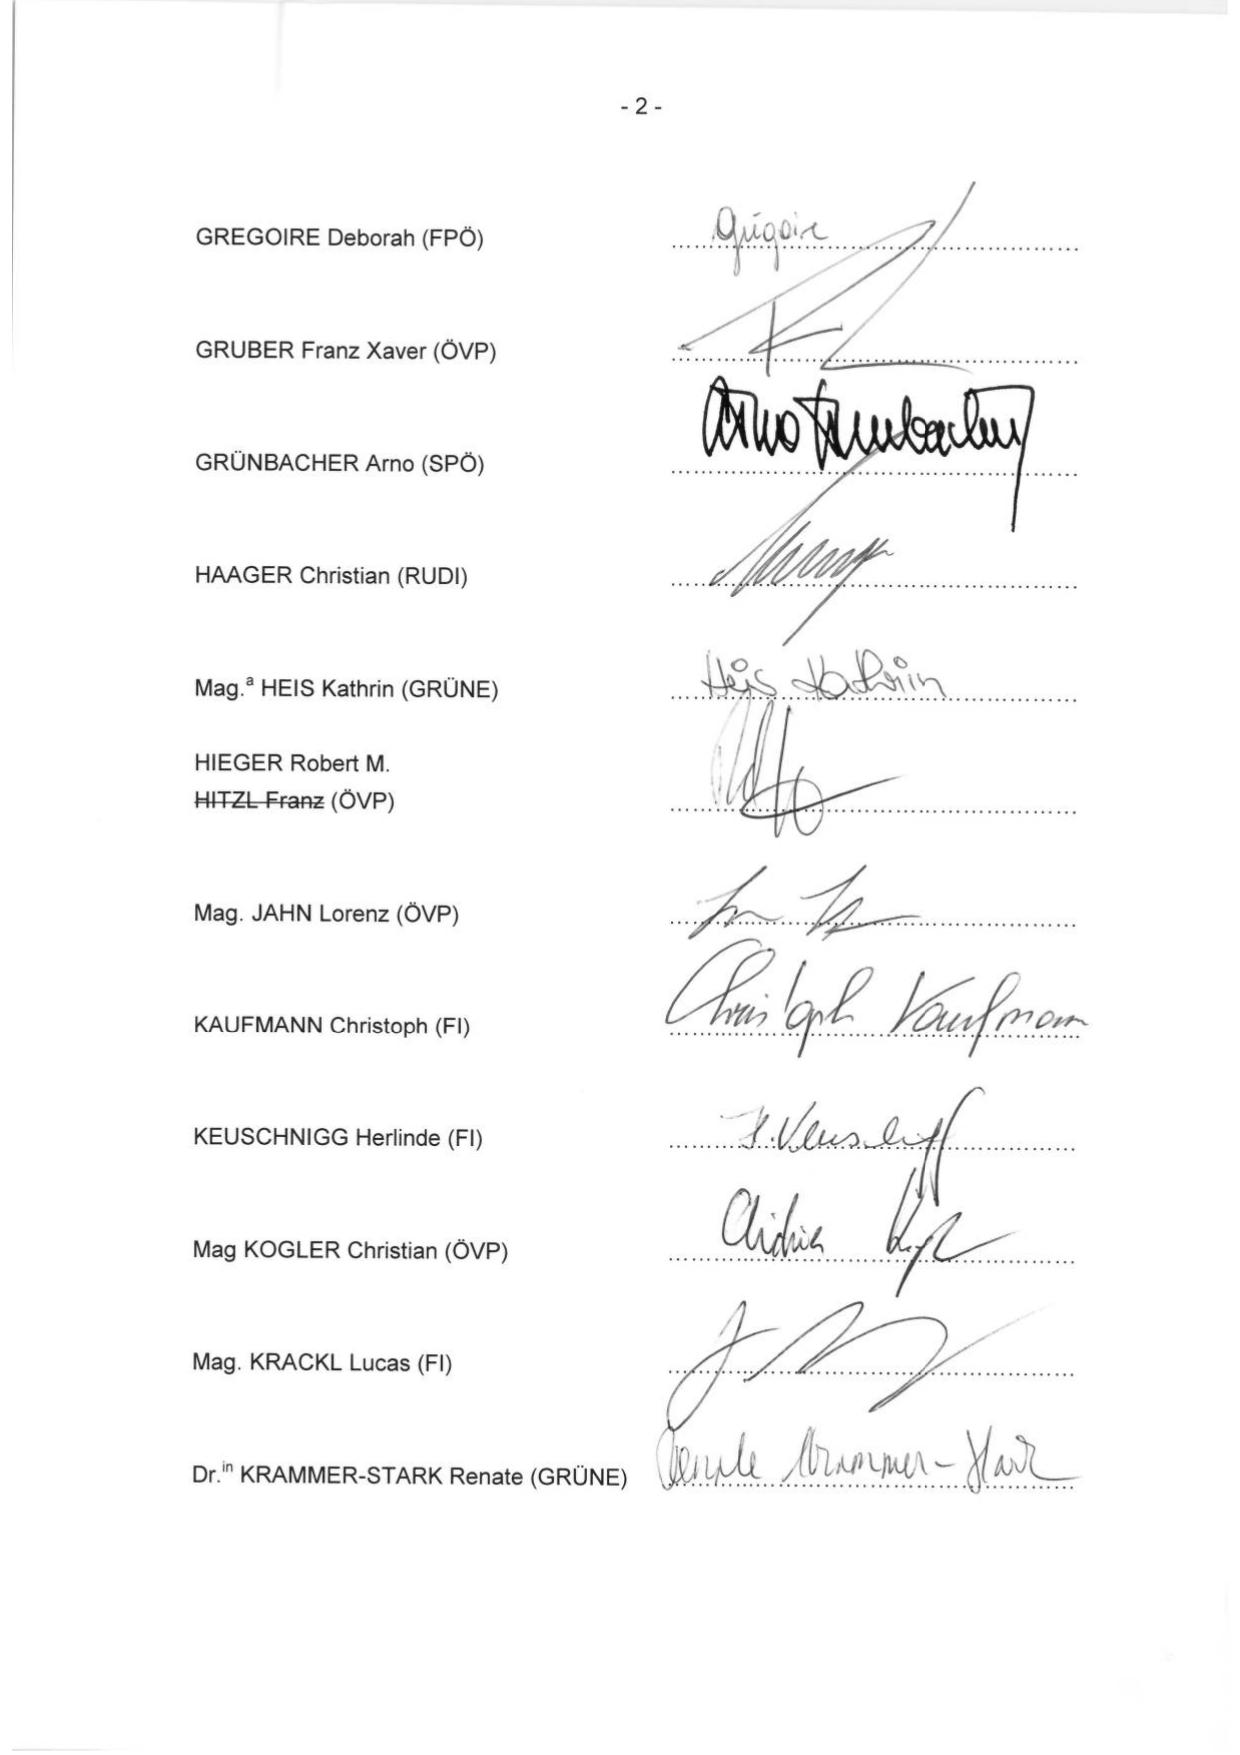 - 2 -
GREGOIRE Deborah (FPÖ) Grégoire
GRUBER Franz Xaver (ÖVP)
GRÜNBACHER Arno (SPÖ) Arno Grünbacher
HAAGER Christian (RUDI)
Mag.ª HEIS Kathrin (GRÜNE) Heis Kathrin
HIEGER Robert M.
HITZL Franz (ÖVP)
Mag. JAHN Lorenz (ÖVP)
KAUFMANN Christoph (FI) Christoph Kaufmann
KEUSCHNIGG Herlinde (FI) H. Keuschnigg
Mag KOGLER Christian (ÖVP) Christian Kogler
Mag. KRACKL Lucas (FI)
Dr.ⁱⁿ KRAMMER-STARK Renate (GRÜNE) Renate Krammer-Stark